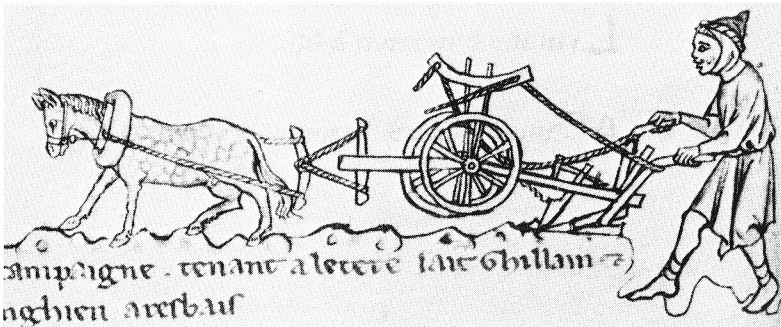 campaigne . tenant a le tere sait Ghillain ⁊
nghien aresbais